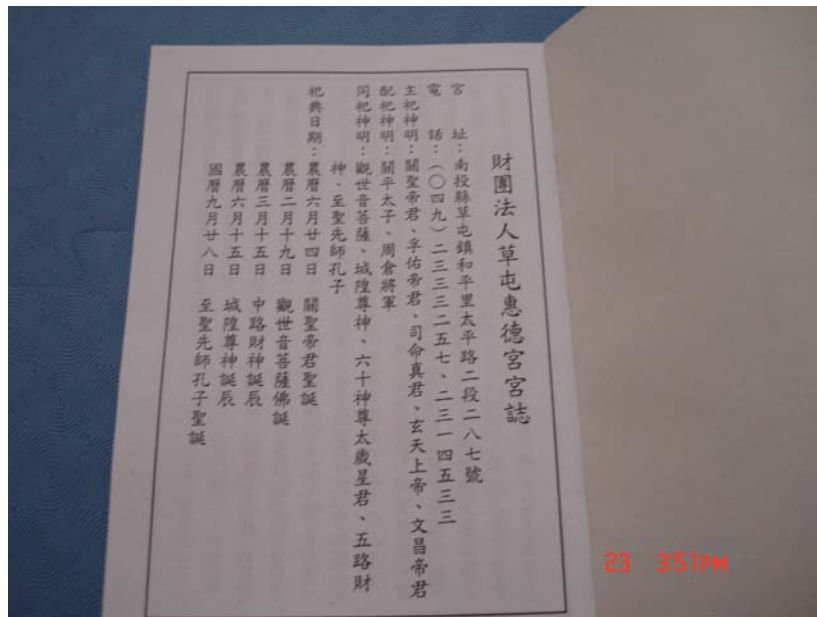 財團法人草屯惠德宮宮誌
宮　　址：南投縣草屯鎮和平里太平路二段二八七號
電　　話：（〇四九）二三三三二五七、二三一四五三三
主祀神明：關聖帝君、孚佑帝君、司命真君、玄天上帝、文昌帝君
配祀神明：關平太子、周倉將軍
同祀神明：觀世音菩薩、城隍尊神、六十神尊太歲星君、五路財
神、至聖先師孔子
祀典日期：農曆六月廿四日　關聖帝君聖誕
農曆二月十九日　觀世音菩薩佛誕
農曆三月十五日　中路財神誕辰
農曆六月十五日　城隍尊神誕辰
國曆九月廿八日　至聖先師孔子聖誕
23 3:51PM